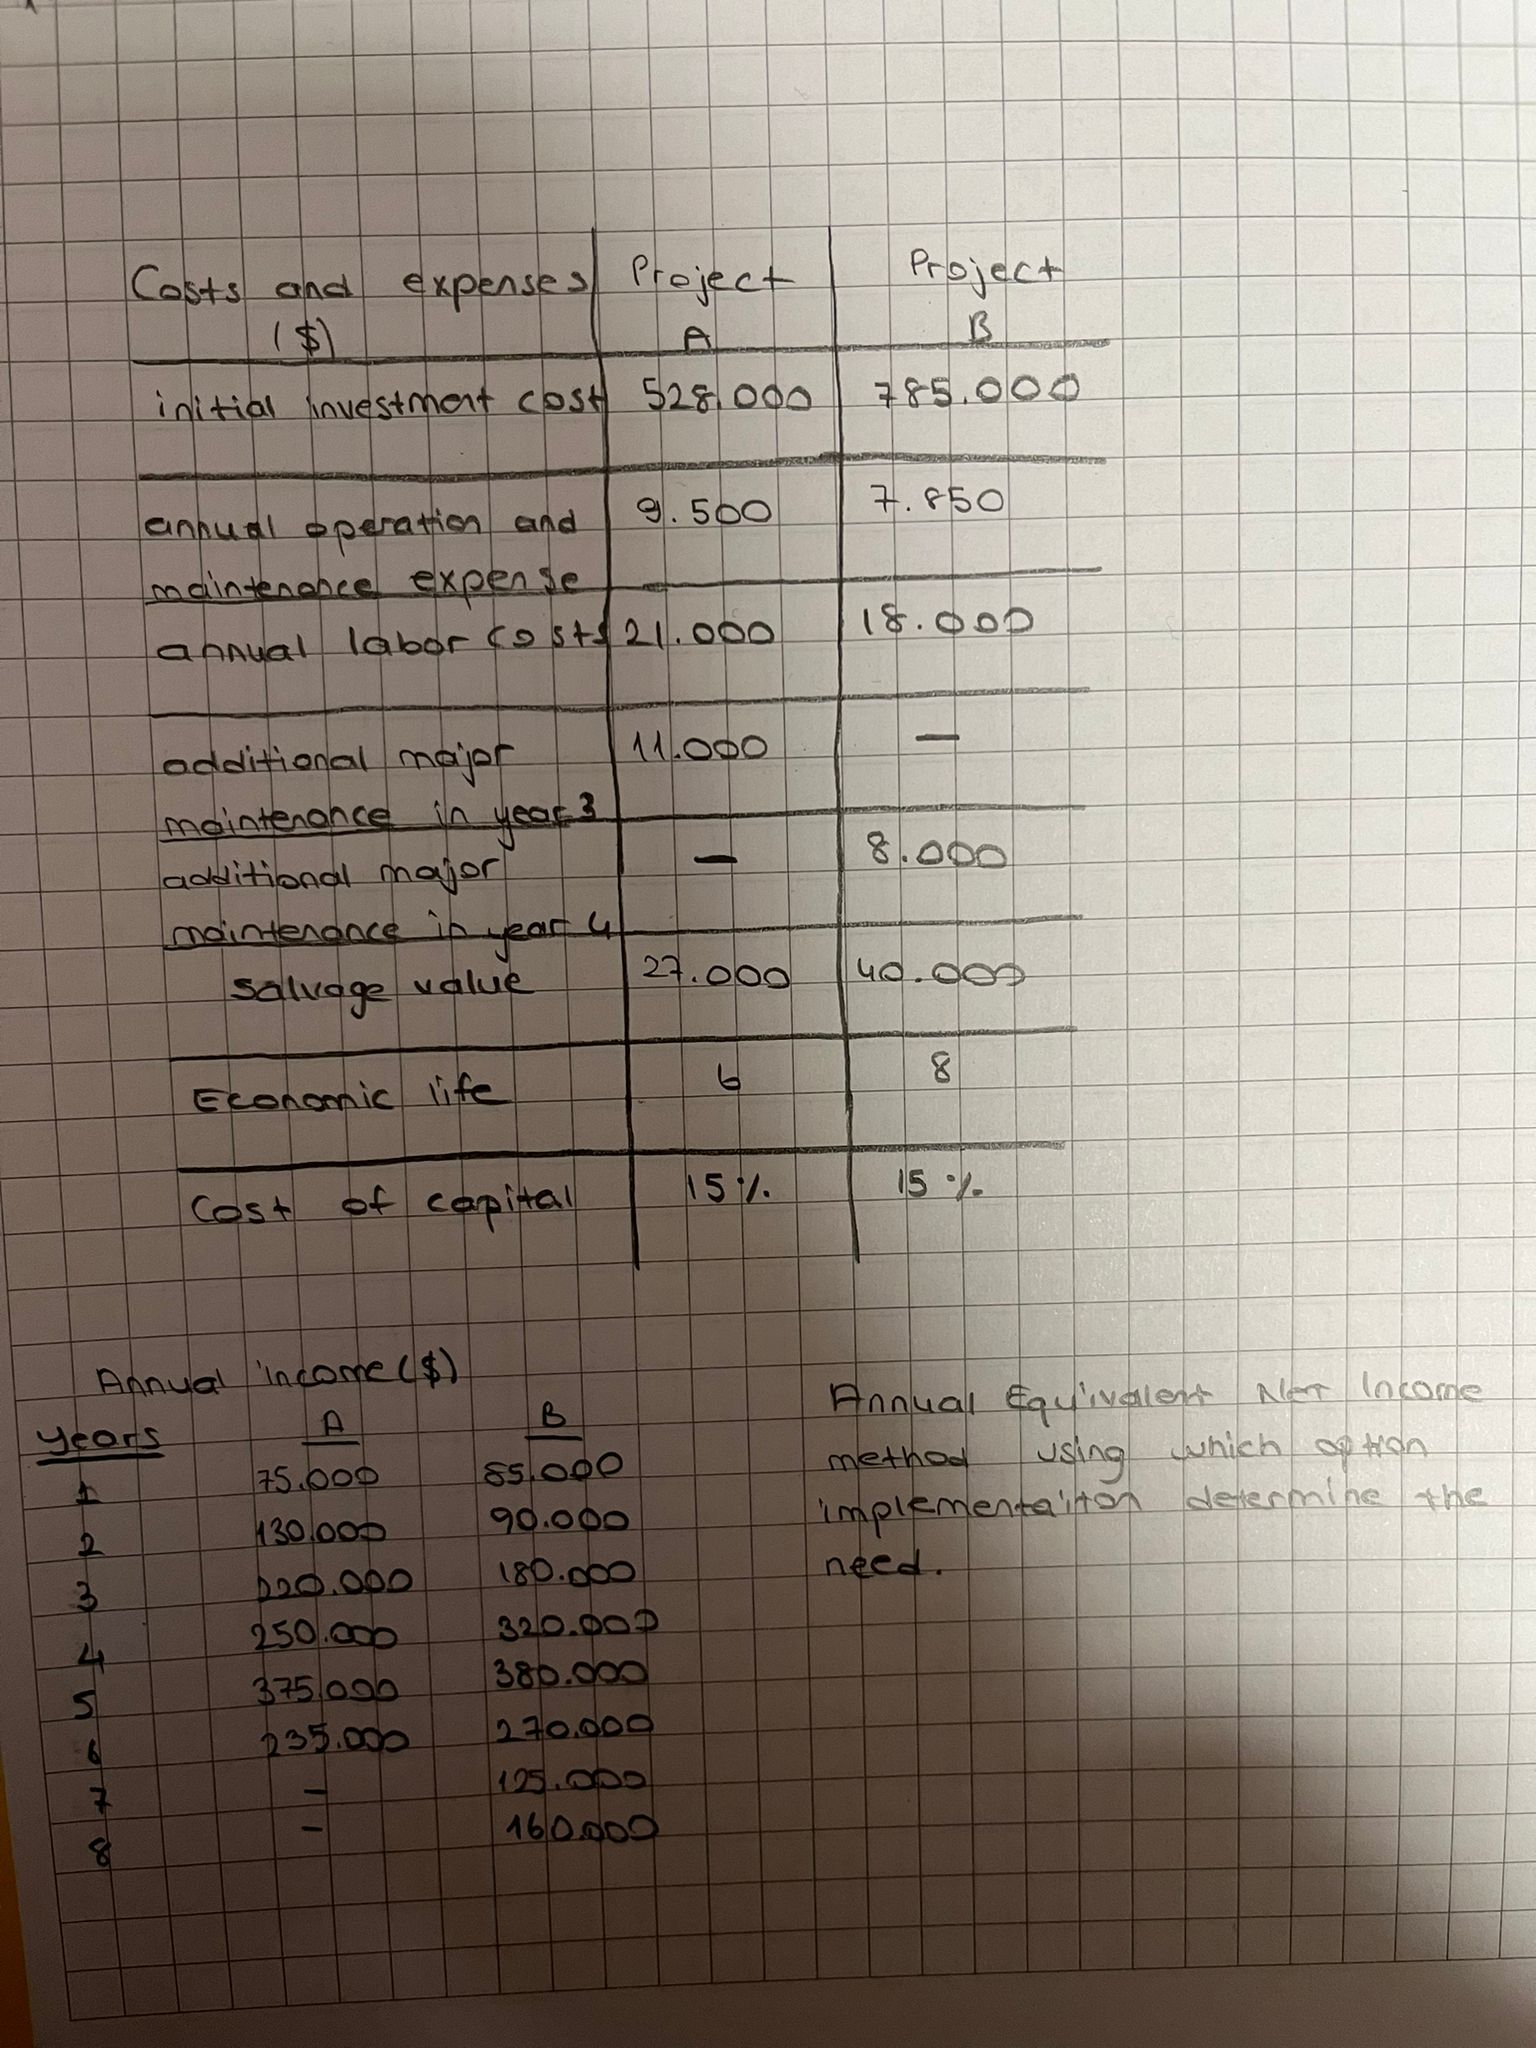 Costs and expenses Project Project
($) A B
initial investment cost 528.000 785.000
annual operation and 9.500 7.850
maintenance expense
annual labor costs 21.000 18.000
additional major 11.000 —
maintenance in year 3
additional major — 8.000
maintenance in year 4
salvage value 27.000 40.000
Economic life 6 8
Cost of capital 15% 15%
Annual income ($)
years A B
1 75.000 85.000
2 130.000 90.000
3 220.000 180.000
4 250.000 320.000
5 375.000 380.000
6 235.000 270.000
7 - 125.000
8 - 160.000
Annual Equivalent Net Income
method using which option
implementaiton determine the
need.